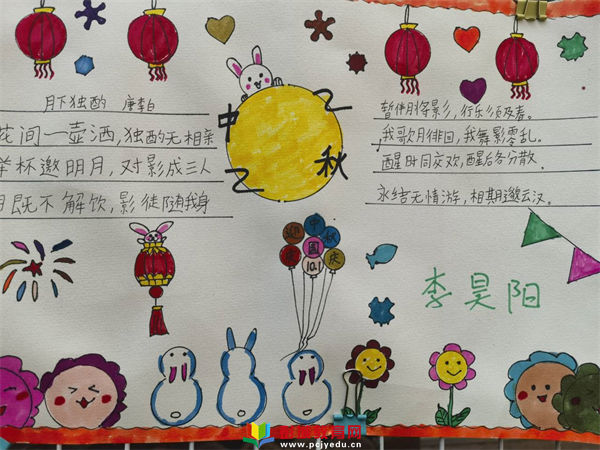 月下独酌 唐李白
花间一壶洒,独酌无相亲
举杯邀明月,对影成三人
月既不解饮,影徒随我身
中
秋
暂伴月将影,行乐须及春。
我歌月徘徊,我舞影零乱。
醒时同交欢,醒后各分散
永结无情游,相期邈云汉。
迎中秋
国庆
10.1
李昊阳
教育网
www.pcjyedu.cn